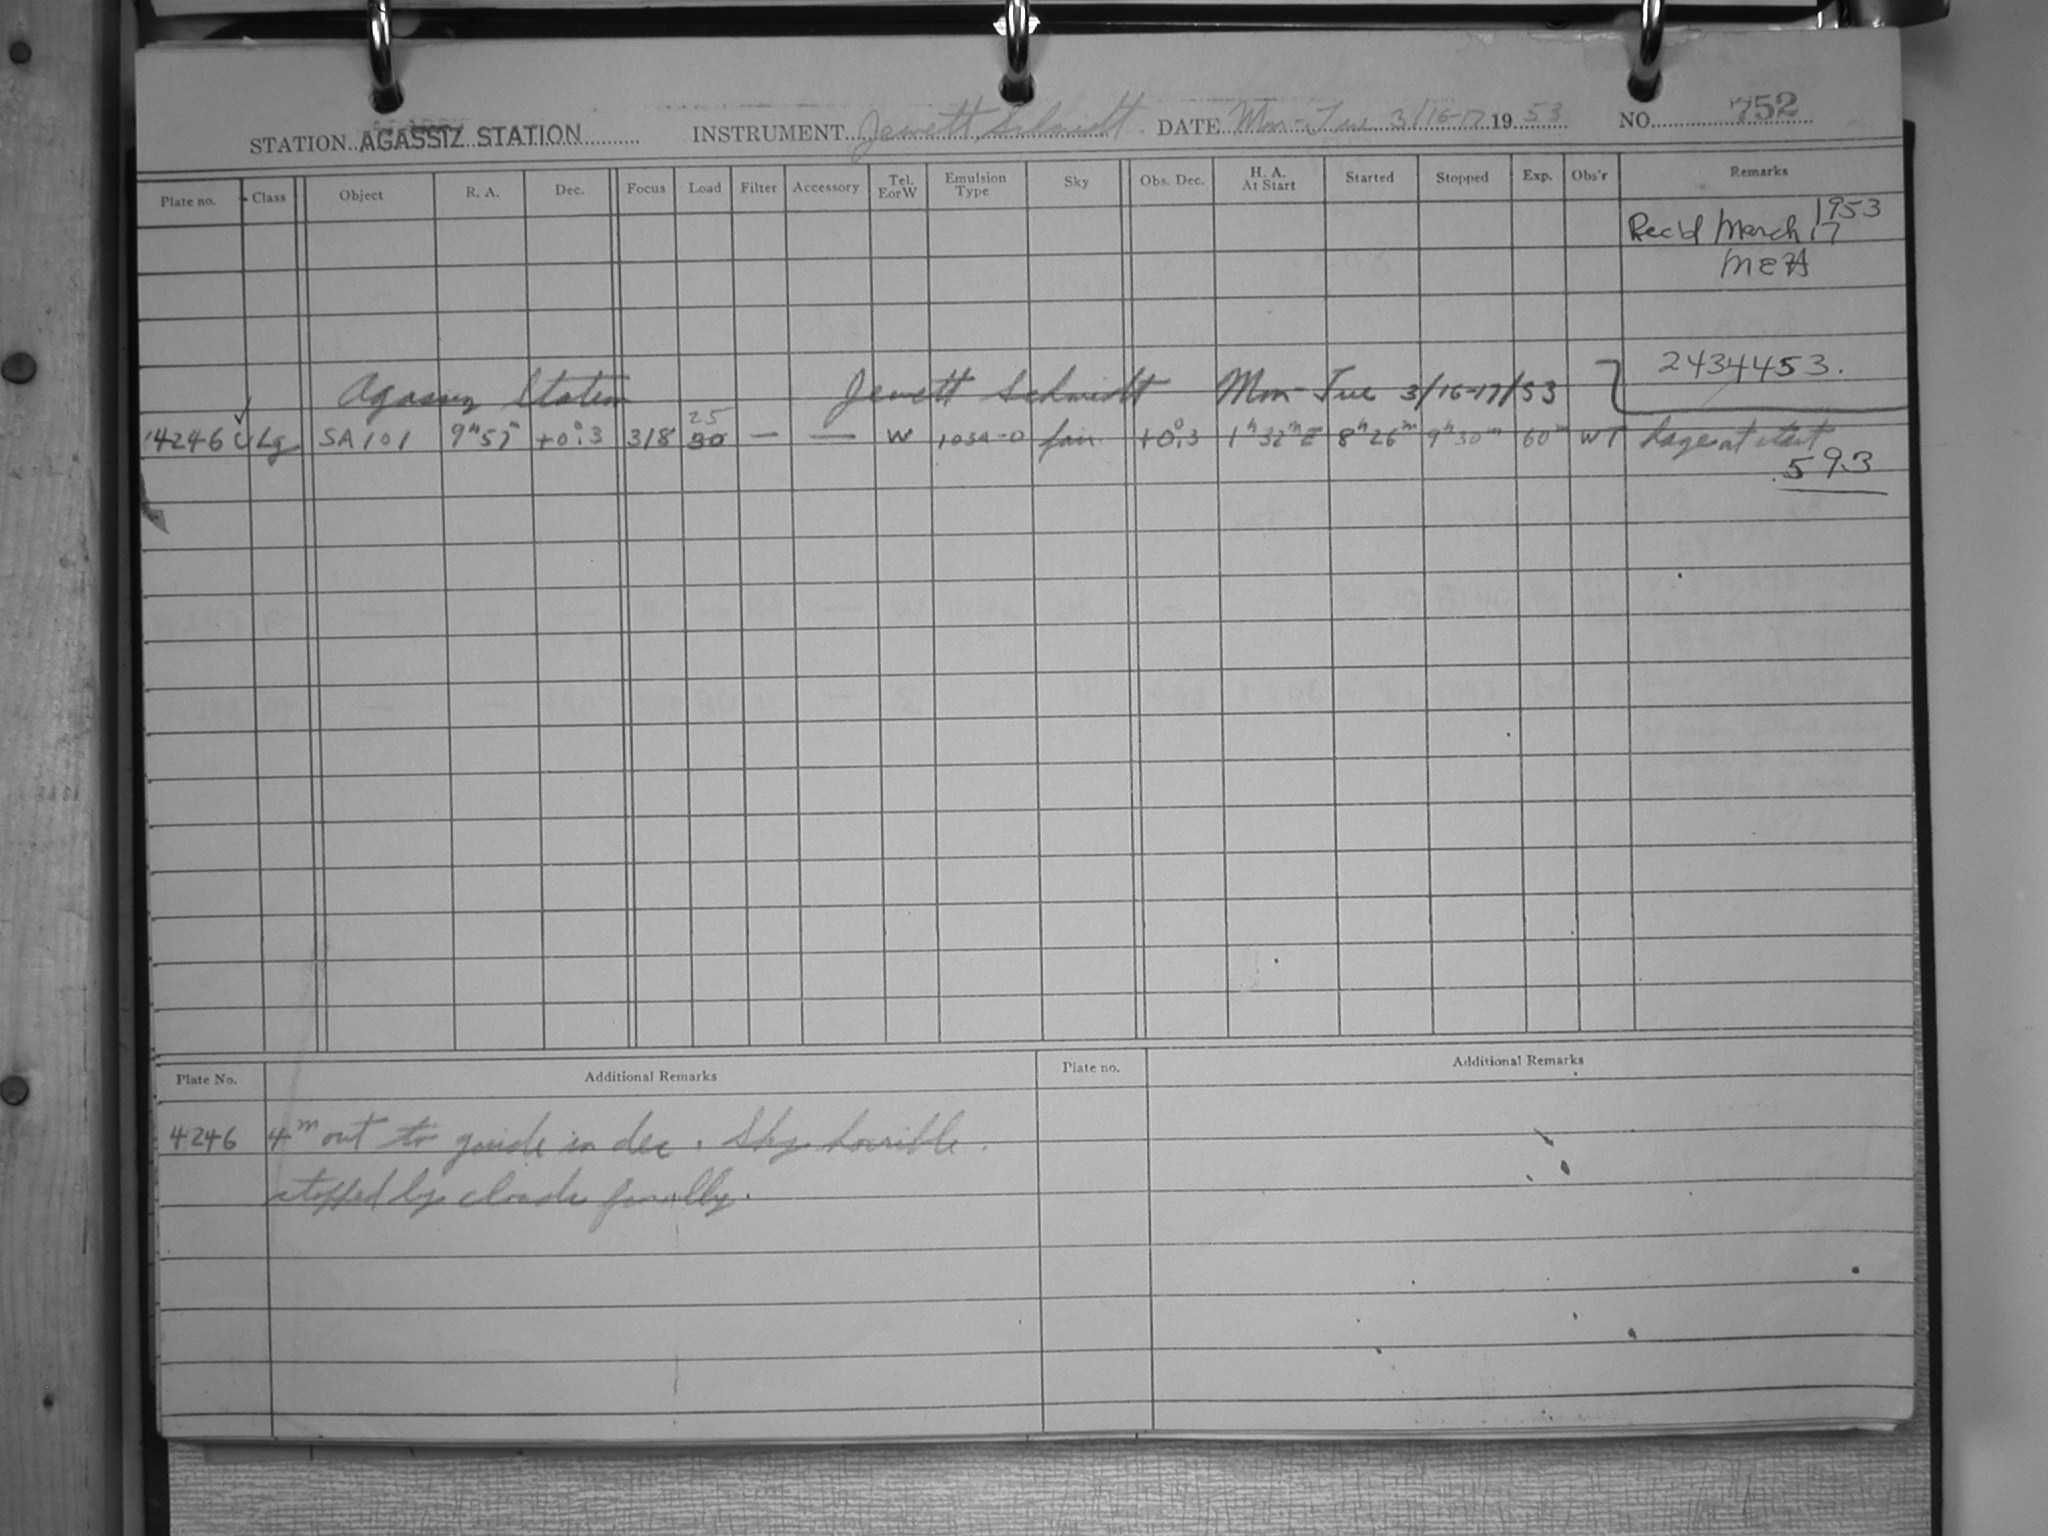 STATION AGASSIZ STATION INSTRUMENT Jewett Schmidt DATE Mon-Tue 3/16-17 1953 NO. 752
Plate no. Class Object R. A. Dec. Focus Load Filter Accessory Tel. E or W Emulsion Type Sky Obs. Dec. H. A. At Start Started Stopped Exp. Obs'r Remarks
1953
Rec'd March 17
2434453.
Agassiz Station Jewett Schmidt Mon-Tue 3/16-17/53
25
14246 SA101 9h57m +0°.3 318 30 — — W 103a-O fair +0°.3 1h32mE 8h26m 9h30m 60m WT haze at start
.593
Plate No. Additional Remarks Plate no. Additional Remarks
4246 4m out to guide in dec. Sky horrible.
stopped by clouds finally.